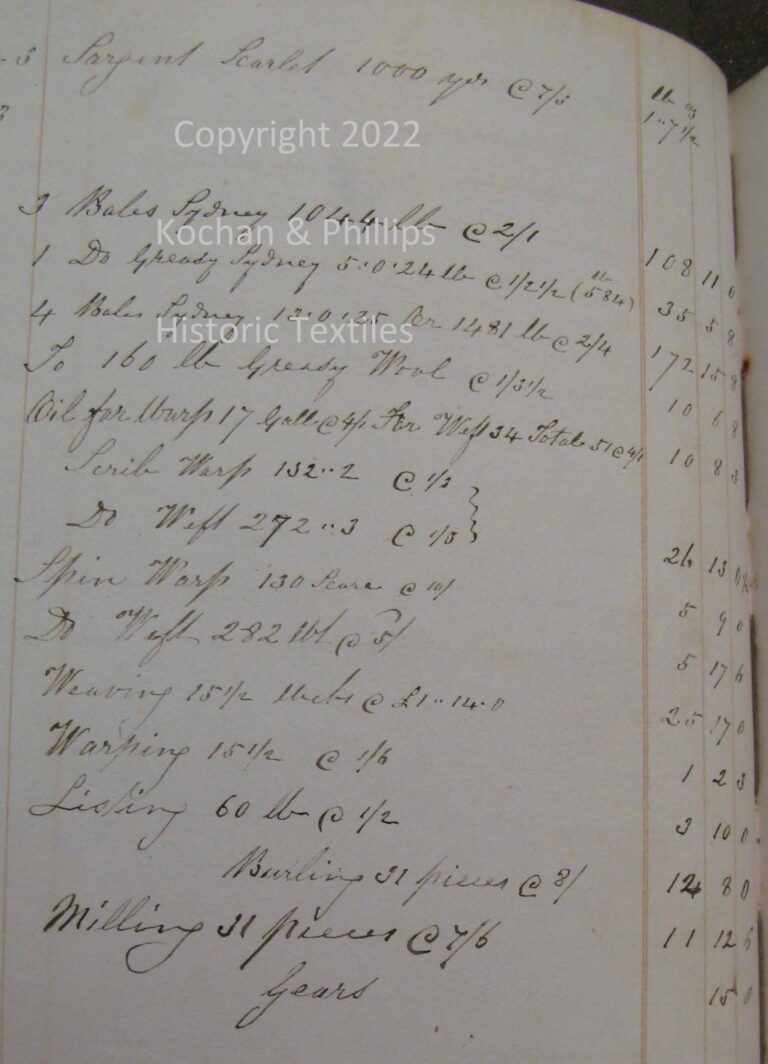 5 Sargent Scarlet 1000 yds @ 7/5
lb oz
1"7 1/2
3
Copyright 2022
3 Bales Sydney 1044 lb @ 2/1 108 11 0
Kochan & Phillips
1 Do Greasy Sydney 5:0:24 lb @ 1/2 1/2 (584 lb) 35 5 8
4 Bales Sydney 13:0:25 Or 1481 lb @ 2/4 172 15 8
Historic Textiles
To 160 lb Greasy Wool @ 1/3 1/2 10 6 8
Oil for Warp 17 Gall @ 4/1 For Weft 34 Total 51 @ 4/1 10 8 3
Scrib Warp 132"2 @ 1/3
Do Weft 272"3 @ 1/3 26 13 0
Spin Warp 130 Score @ 10/ 5 9 0
Do Weft 282 @ 5/ 5 17 6
Weaving 15 1/2 Webs @ £1"14"0 25 17 0
Warping 15 1/2 @ 1/6 1 2 3
Listing 60 lb @ 1/2 3 10 0
Burling 31 pieces @ 8/ 12 8 0
Milling 31 pieces @ 7/6 11 12 6
Gears 15 0